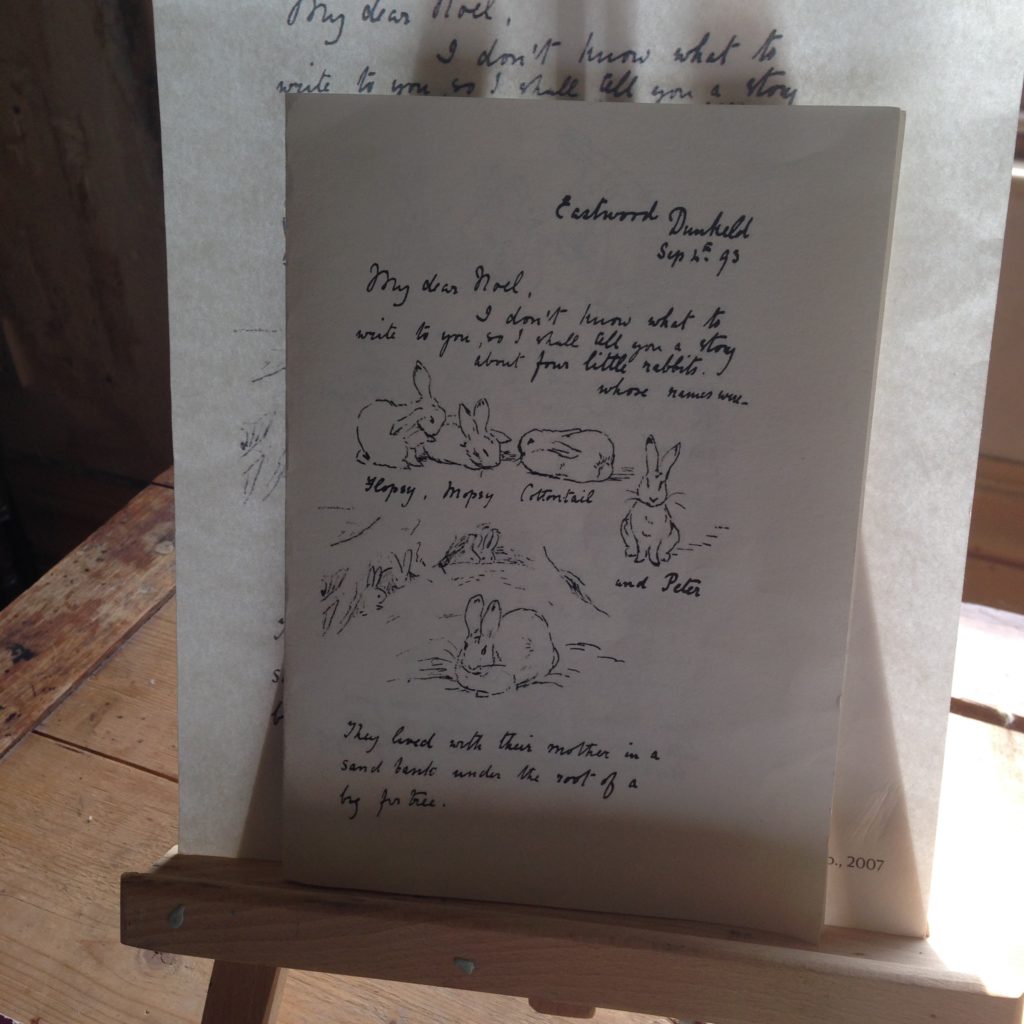 My dear Noel,
I don't know what to
write to you, so I shall tell you a story
Eastwood Dunkeld
Sep 4th 93
My dear Noel,
I don't know what to
write to you, so I shall tell you a story
about four little rabbits.
whose names were_
Flopsy, Mopsy Cottontail
and Peter
They lived with their mother in a
sand bank under the root of a
big fir tree.
o., 2007